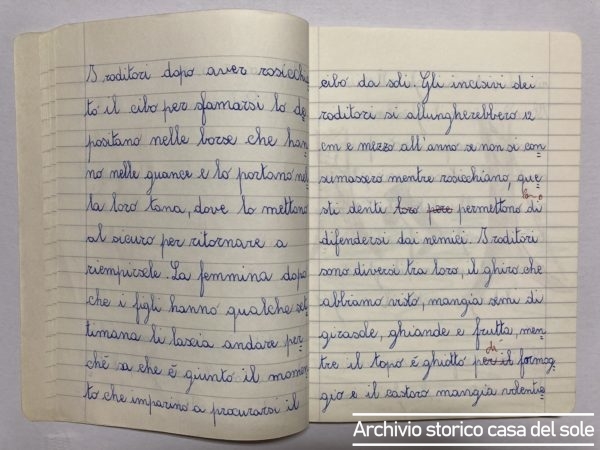 I roditori dopo aver rosicchia
to il cibo per sfamarsi lo de
positano nelle borse che han
no nelle guance e lo portano nel
la loro tana, dove lo mettono
al sicuro per ritornare a
riempirsele. La femmina dopo
che i figli hanno qualche set
timana li lascia andare per
ché sa che é giunto il momen
to che imparino a procurarsi il
cibo da soli. Gli incisivi dei
roditori si allungherebbero 12
cm e mezzo all'anno se non si con
sumassero mentre rosicchiano, que
sti denti loro pere permettono di
difendersi dai nemici. I roditori
sono diversi tra loro, il ghiro che
abbiamo visto, mangia semi di
girasole, ghiande e frutta, men
di
tre il topo é ghiotto per il formag
gio e il castoro mangia volentie
Archivio storico casa del sole